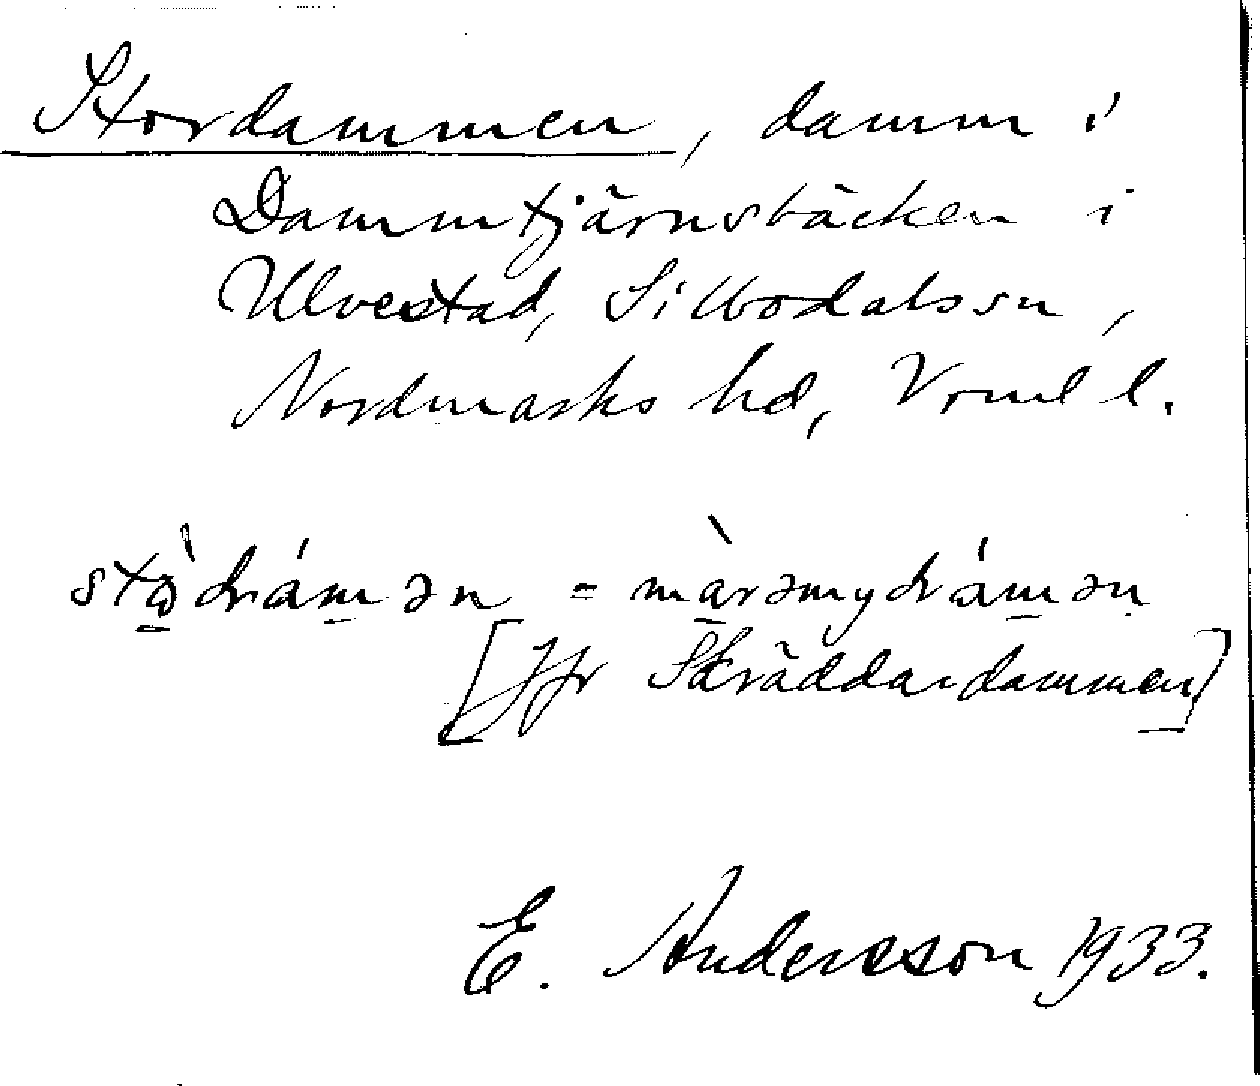 Stordammen, damm i
Dammtjärnsbäcken i
Ulvestad, Silbodalssn,
Nordmarks hd, Vrml l.
[Jfr Skräddardammen]
E. Andersson 1933.